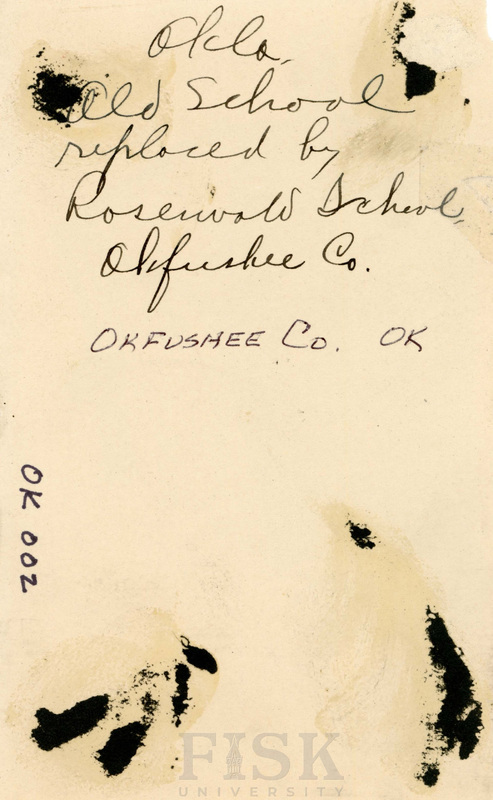 Okla.
Old School
replaced by
Rosenwald School,
Okfuskee Co.
OKFUSKEE CO. OK
OK 002
FISK
UNIVERSITY